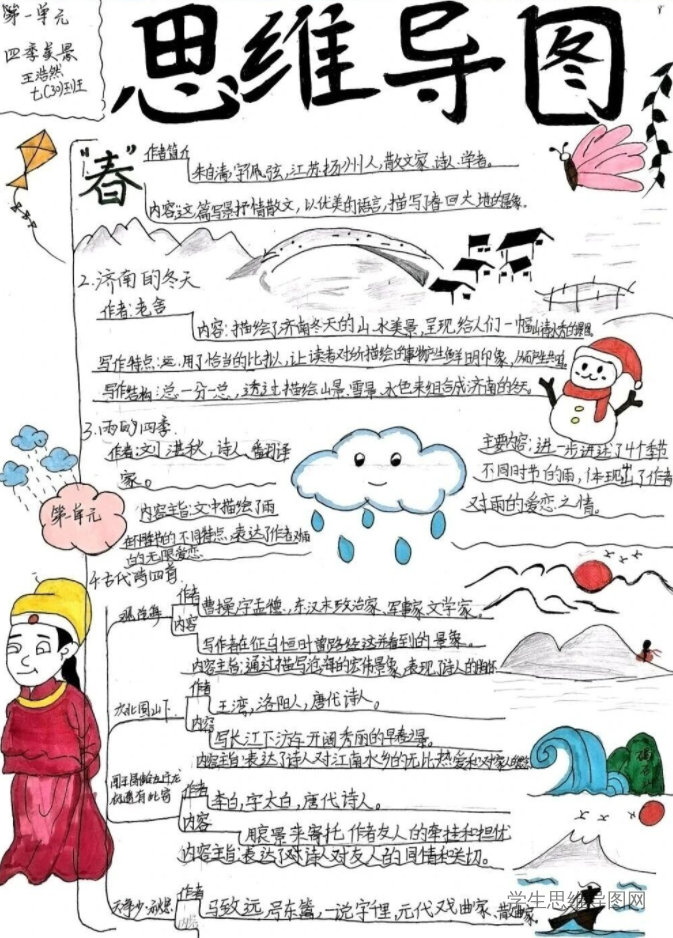 第一单元
四季美景
王浩然
七(30)班
思维导图
"春"
作者简介
朱自清,字佩弦,江苏扬州人,散文家、诗人、学者。
内容:这篇写景抒情散文,以优美的语言,描写了春回大地的景象。
2.济南的冬天
作者:老舍
内容:描绘了济南冬天的山、水美景,呈现给人们一幅
写作特点:运用了恰当的比拟,让读者对所描绘的事物产生鲜明印象,
写作结构:总一分一总,透过描绘山景、雪景、水色来组合成济南的冬天。
3.雨的四季
作者:刘湛秋,诗人、翻译
家。
主要内容:进一步讲述了4个季节
不同时节的雨,体现出了作者
对雨的爱恋之情。
第一单元
内容主旨:文中描绘了雨
的不同特点,表达了作者对雨
的无限爱恋
4.古代诗四首
观沧海
作者
曹操,字孟德,东汉末政治家、军事家、文学家。
内容
写作者在征乌恒时曾路经这并看到的景象。
内容主旨:通过描写沧海的宏伟景象,表现了诗人的
次北固山下
作者
王湾,洛阳人,唐代诗人。
内容
写长江下游开阔秀丽的早春景。
内容主旨:表达了诗人对江南水乡的无比热爱和对家人的
闻王昌龄左迁龙
标遥有此寄
作者
李白,字太白,唐代诗人。
内容
景来寄托作者友人的牵挂和担忧
内容主旨:表达了对诗人对友人的同情和关切。
天净沙·秋思
作者
马致远,号东篱,一说字千里,元代戏曲家、散曲家。
学生思维导图网